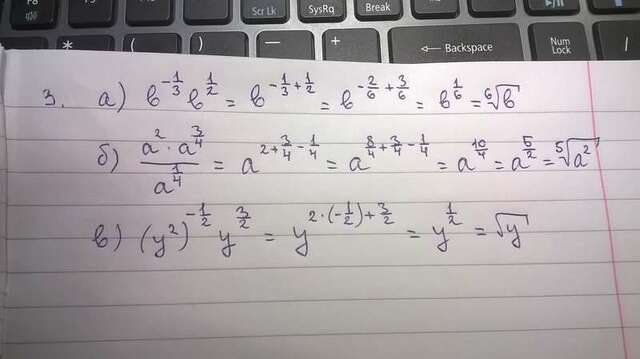 F8 Scr Lk SysRq Break
* ( ) - + ← Backspace Num Lock /
3. а) b^{-\frac{1}{3}} b^{\frac{1}{2}} = b^{-\frac{1}{3}+\frac{1}{2}} = b^{-\frac{2}{6}+\frac{3}{6}} = b^{\frac{1}{6}} = \sqrt[6]{b}
б) \frac{a^{2} \cdot a^{\frac{3}{4}}}{a^{\frac{1}{4}}} = a^{2+\frac{3}{4}-\frac{1}{4}} = a^{\frac{8}{4}+\frac{3}{4}-\frac{1}{4}} = a^{\frac{10}{4}} = a^{\frac{5}{2}} = \sqrt[5]{a^{2}}
в) (y^{2})^{-\frac{1}{2}} y^{\frac{3}{2}} = y^{2 \cdot (-\frac{1}{2})+\frac{3}{2}} = y^{\frac{1}{2}} = \sqrt{y}